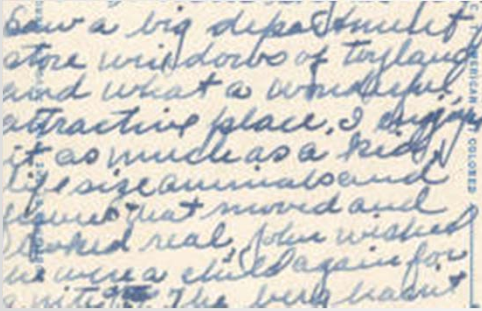 Saw a big department
store windows of toyland
and what a wonderful,
attractive place. I enjoyed
it as much as a kid,
life size animals and
that moved and
looked real, John wished
he were a child again for
a The hasn't